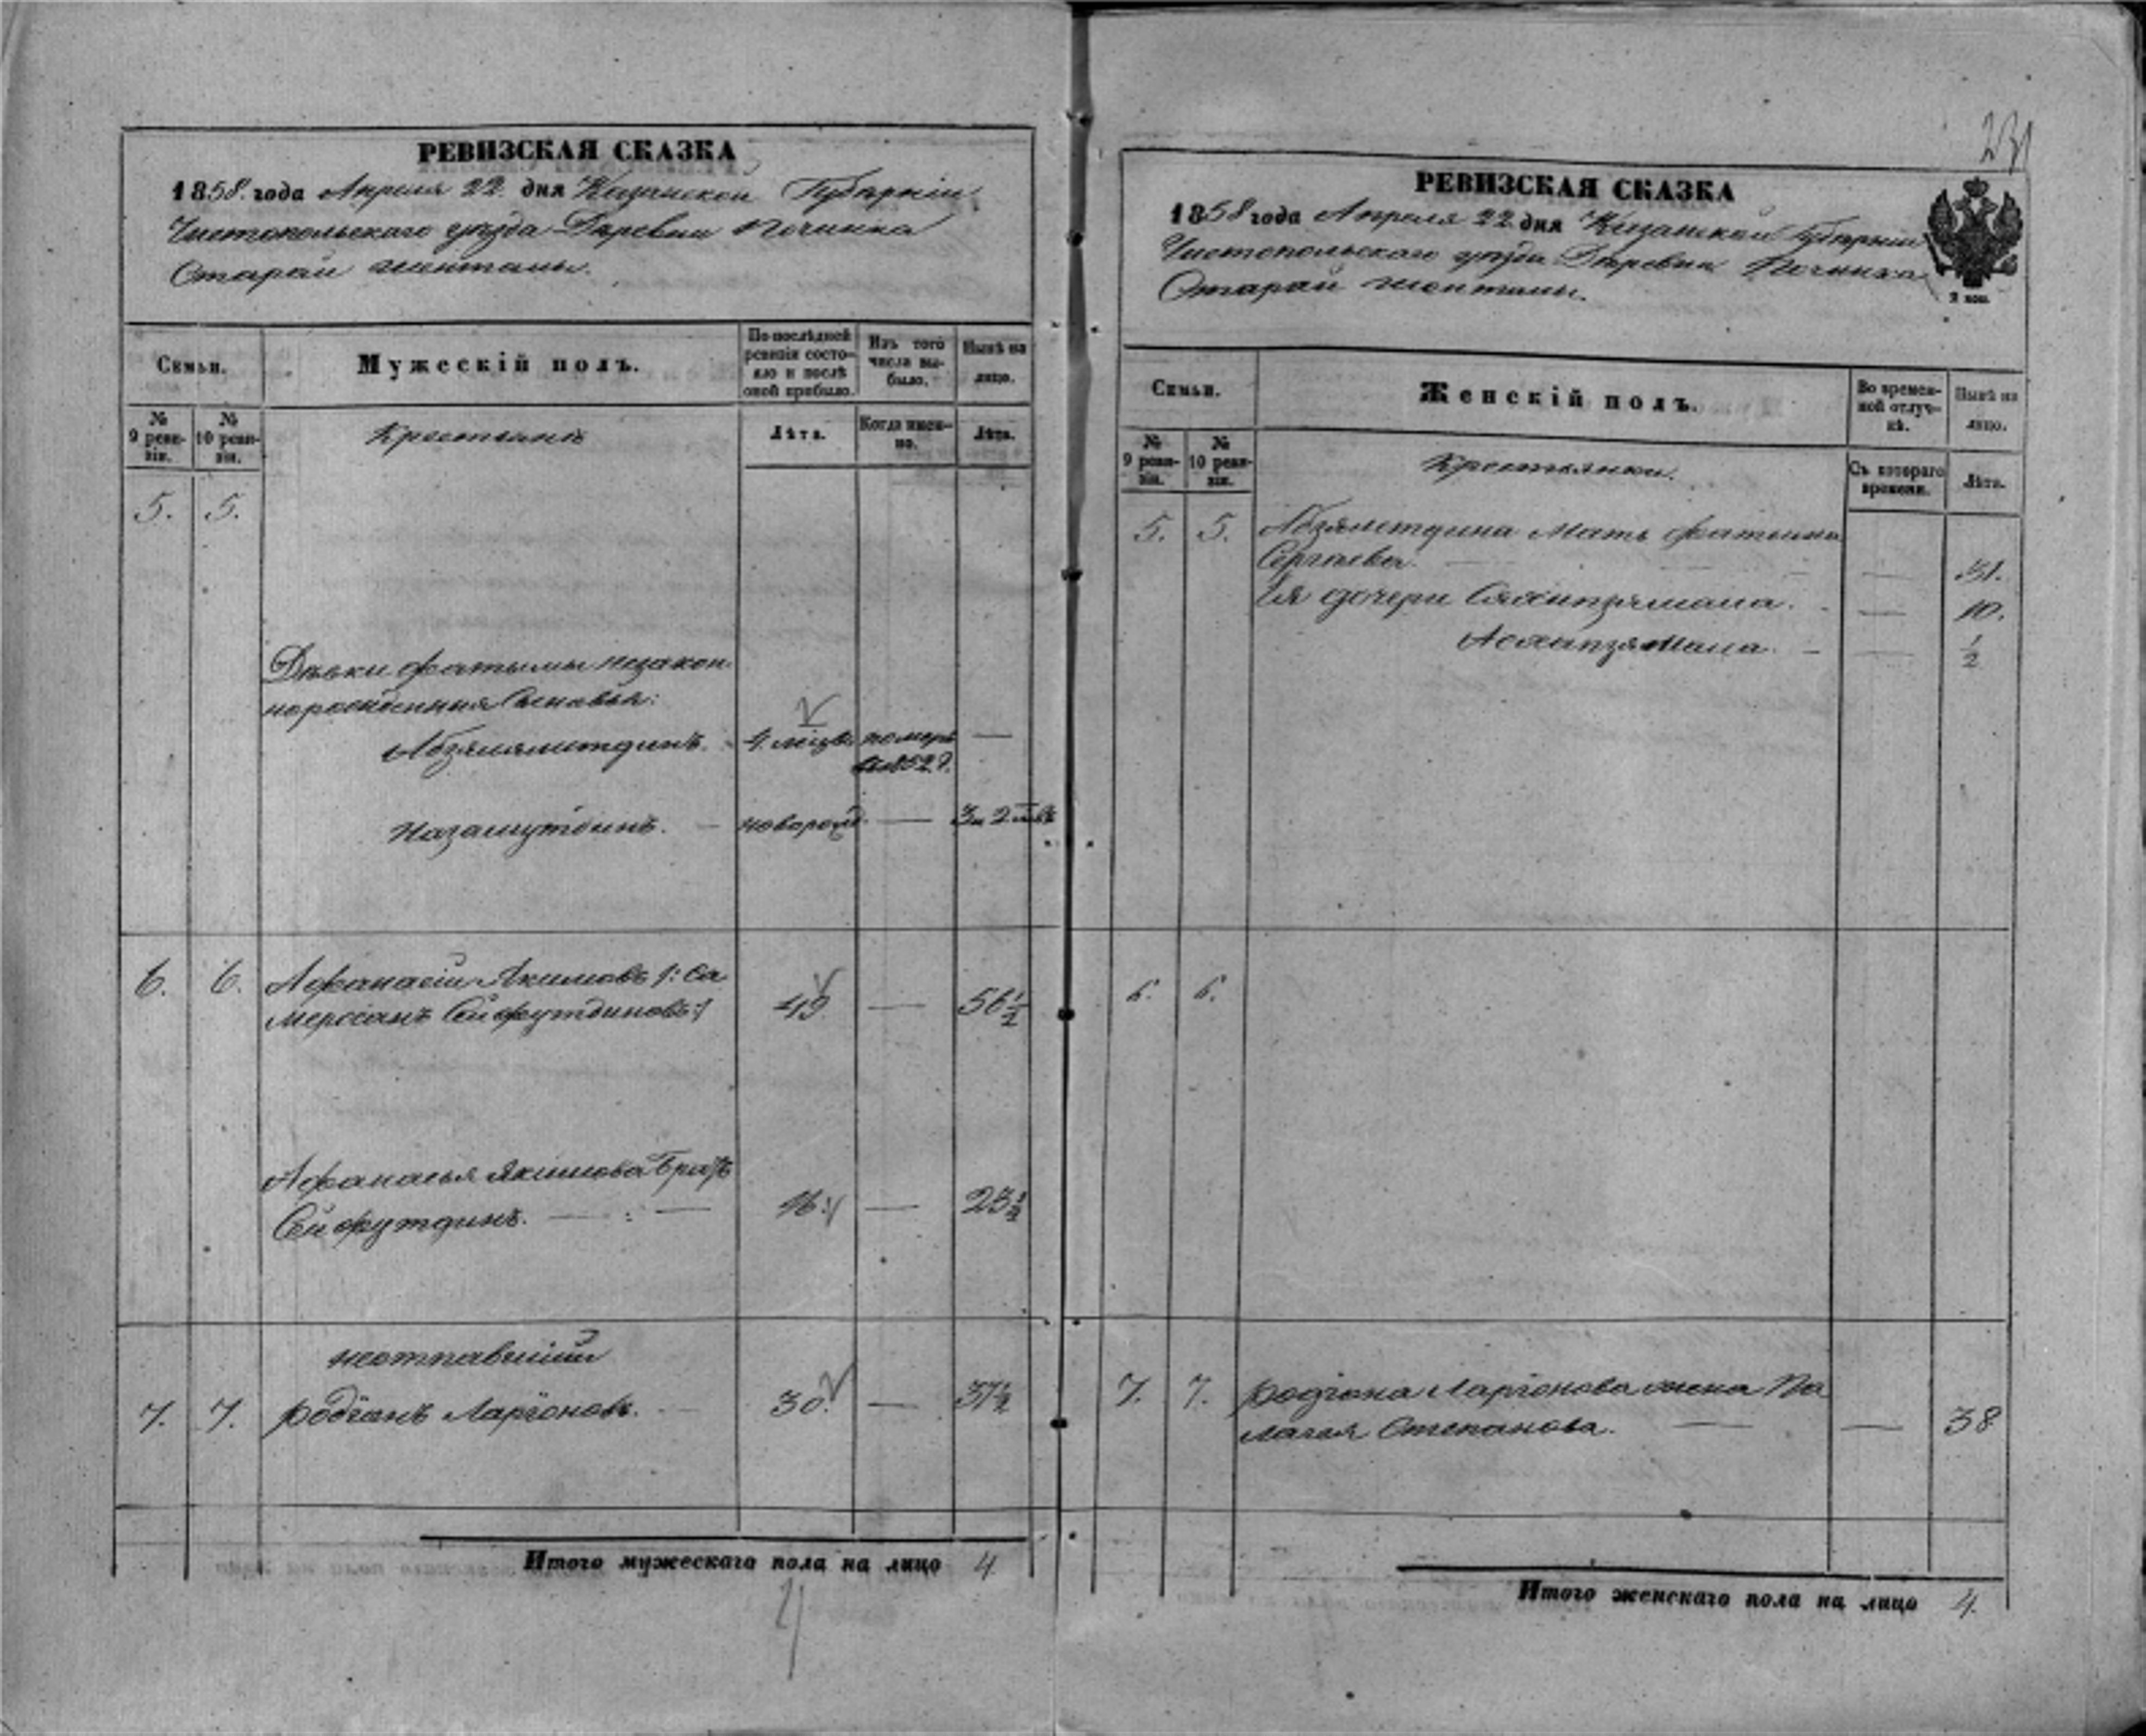 РЕВИЗСКАЯ СКАЗКА
1858. года Апреля 22. дня Казанской Губерніи
Чистопольскаго уезда Деревни Починка
Старай
Семьи.
Мужескій полъ.
По послѣдней ревизіи состояло и послѣ оной прибыло.
Изъ того числа выбыло.
Нынѣ на лицо.
№ 9 ревизіи.
№ 10 ревизіи.
Крестьянъ
Лѣта.
Когда именно.
Лѣта.
5. 5.
Девки Фатымы незакон
норожденныя Сыновья:
Абзялялитдинъ. 4 померъ —
1852
Назамутдинъ. — новорожд. — 3 и 2
6. 6. Афанасіи Якимовъ /: Са
Мерханъ Сейфутдиновъ :/ 49 — 56 1/2
Афанасья Якимова Братъ
Сейфутдинъ. — : — 16 — 23 1/2
неотпавшіи
7. 7. Родіонъ Ларіоновъ. — 30. — 37 1/2
Итого мужескаго пола на лицо 4
РЕВИЗСКАЯ СКАЗКА
1858 года Апреля 22 дня Казанской Губерніи
Чистопольскаго уезда Деревни Починка
Старай
2 коп.
Семьи.
Женскій полъ.
Во временной отлучкѣ.
Нынѣ на лицо.
№ 9 ревизіи.
№ 10 ревизіи.
Крестьянки.
Съ котораго времени.
Лѣта.
5. 5. Мать Фатыма
Сергаева. — 31.
Ея дочери — 10.
— 1/2
6. 6.
7. 7. Родіона Ларіонова жена Па
лагея Степанова. — — 38
Итого женскаго пола на лицо 4.